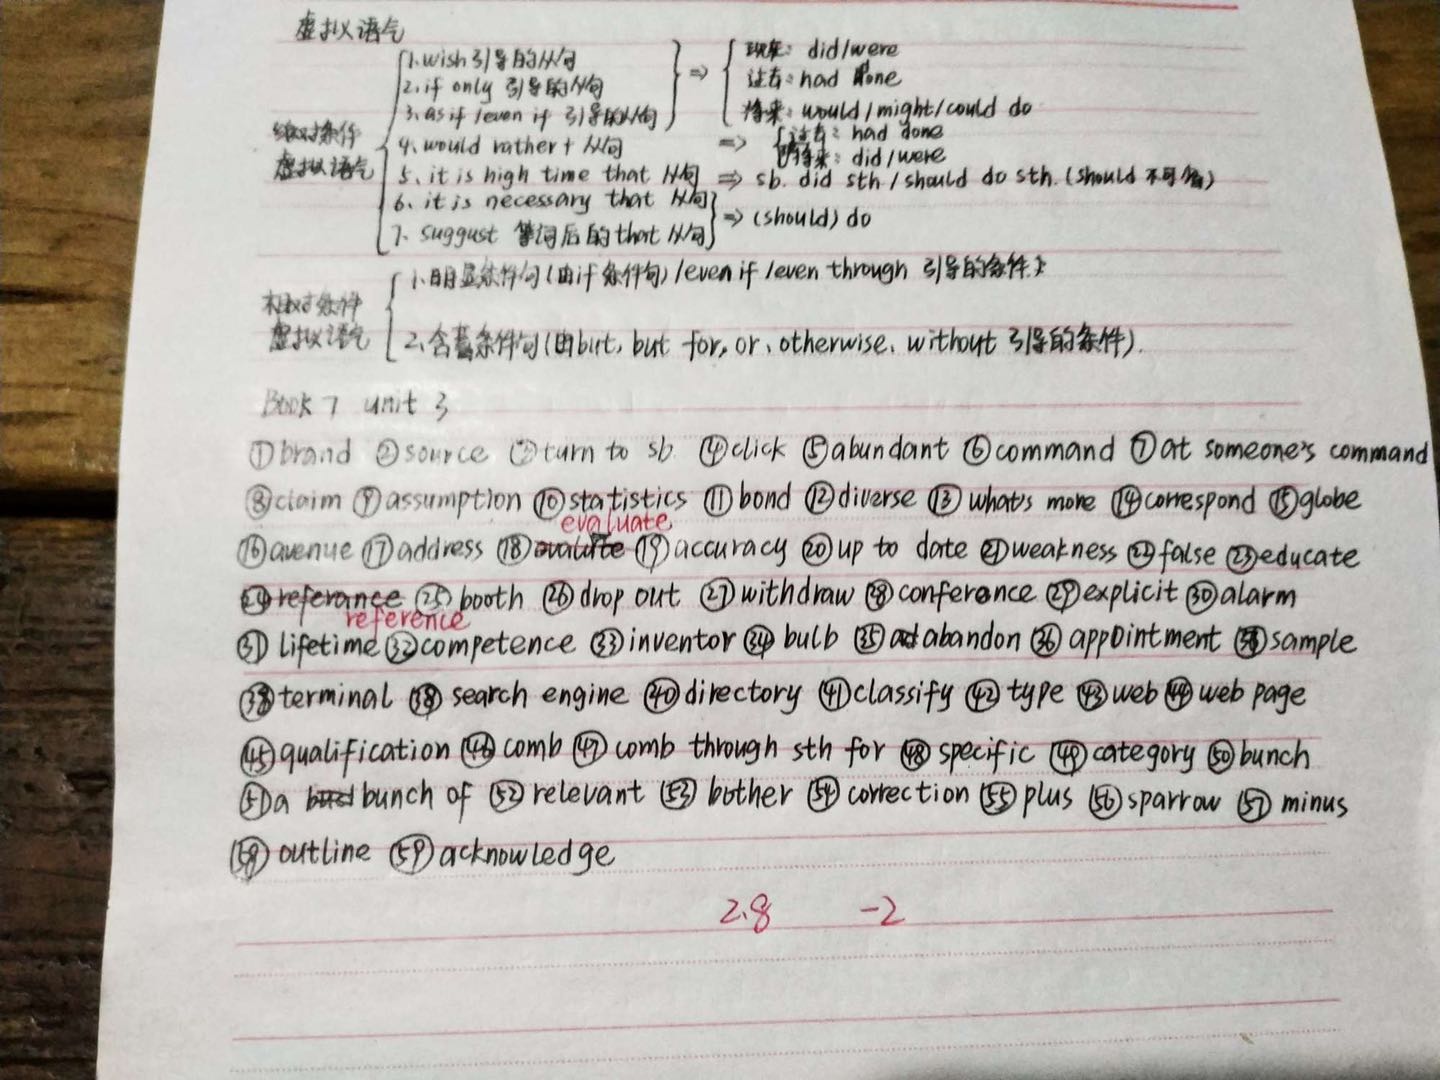 虚拟语气
1. wish引导的从句
2. if only 引导的从句
3. as if /even if 引导的从句
⇒ 现在: did/were
过去: had done
将来: would/might/could do
绝对条件
虚拟语气
4. would rather + 从句 ⇒ 过去: had done
将来: did/were
5. it is high time that 从句 ⇒ sb. did sth / should do sth. (should 不可省)
6. it is necessary that 从句
7. suggust 等词后的that从句 ⇒ (should) do
相对条件
虚拟语气
1. 明显条件句(由if 条件句) /even if /even through 引导的条件
2. 含蓄条件句(由but, but for, or, otherwise, without 引导的条件).
Book 7 unit 3
①brand ②source ③turn to sb. ④click ⑤abundant ⑥command ⑦at someone's command
⑧claim ⑨assumption ⑩statistics ⑪bond ⑫diverse ⑬what's more ⑭correspond ⑮globe
evaluate
⑯avenue ⑰address ⑱ovalute ⑲accuracy ⑳up to date ㉑weakness ㉒false ㉓educate
㉔referance ㉕booth ㉖drop out ㉗withdraw ㉘conference ㉙explicit ㉚alarm
reference
㉛lifetime ㉜competence ㉝inventor ㉞bulb ㉟abandon ㊱appointment ㊲sample
㊳terminal ㊴search engine ㊵directory ㊶classify ㊷type ㊸web ㊹web page
㊺qualification ㊻comb ㊼comb through sth for ㊽specific ㊾category ㊿bunch
(51)a bunch of (52)relevant (53)bother (54)correction (55)plus (56)sparrow (57)minus
(58)outline (59)acknowledge
2.8 -2